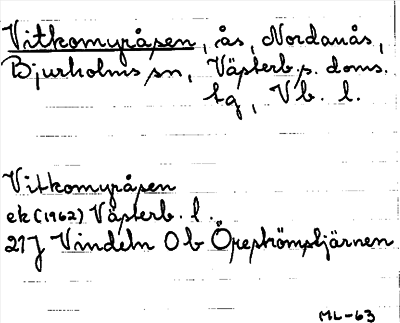 Vitkomyråsen, ås, Nordanås,
Bjurholms sn, Västerb. s. doms.
tg, Vb. l.
Vitkomyråsen
ek (1962) Västerb. l.
21J Vindeln 0b Örestkömstjärnen
ML-63